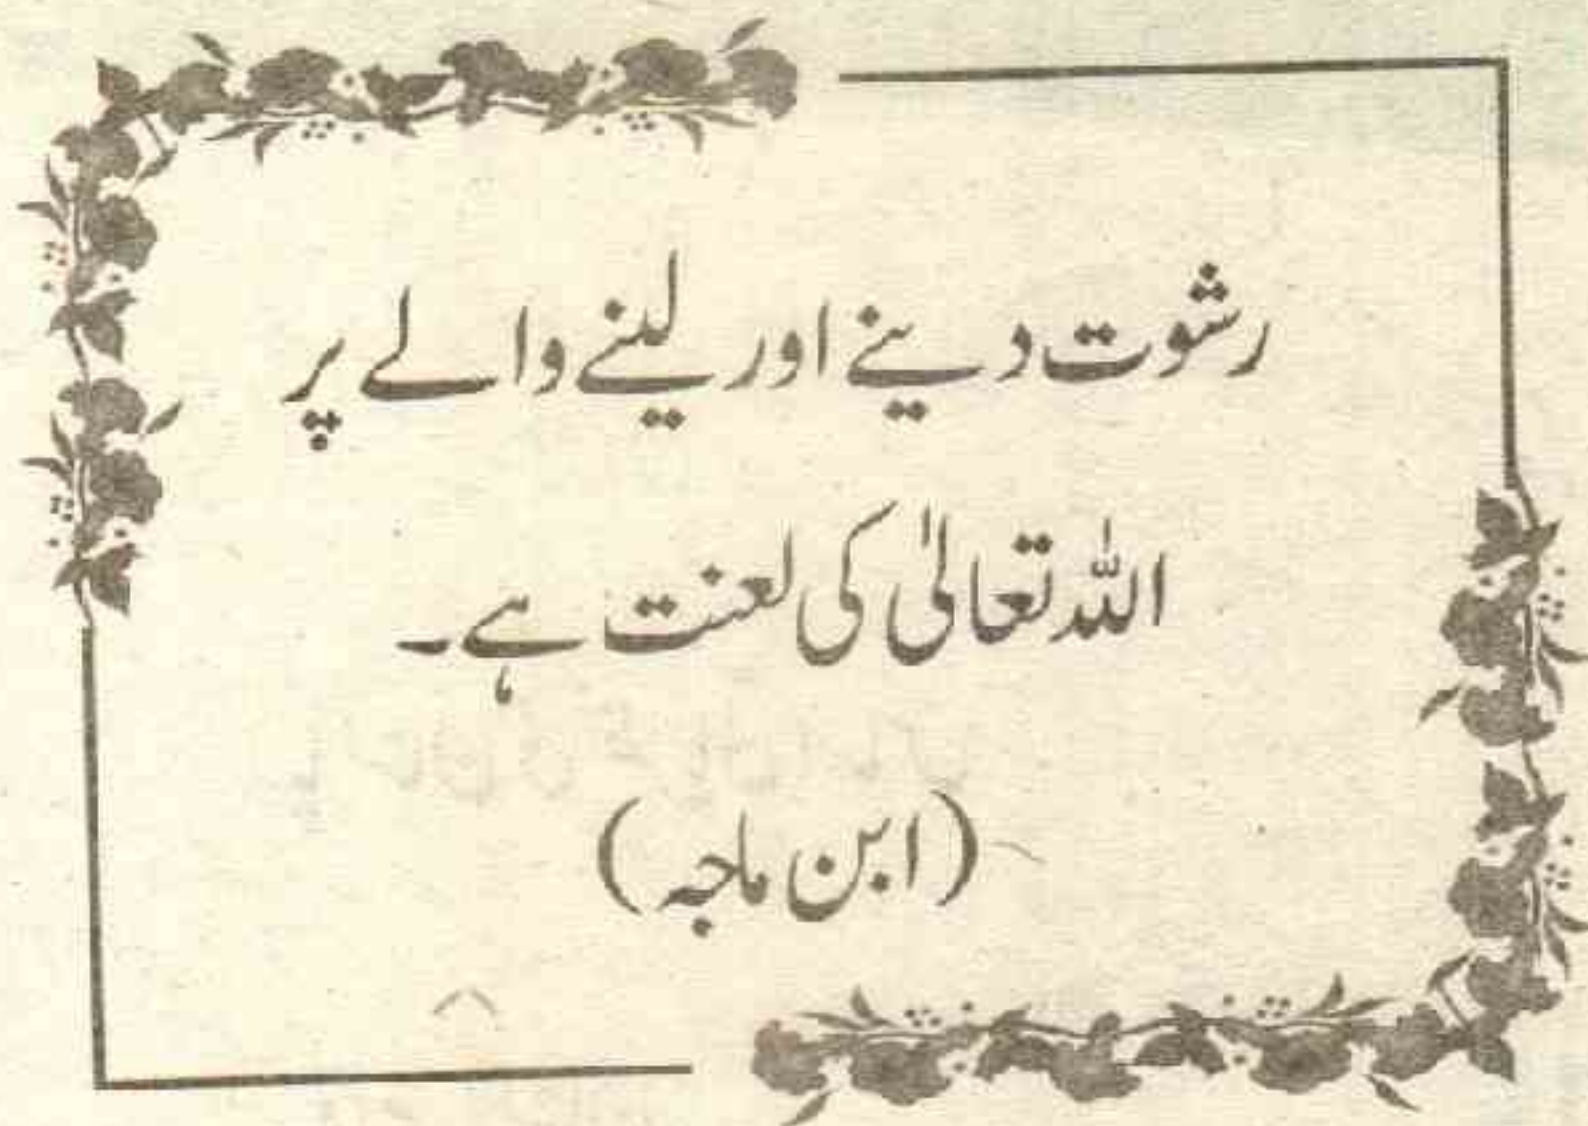 رشوت دینے اور لینے والے پر
اللہ تعالیٰ کی لعنت ہے۔
(ابن ماجہ)